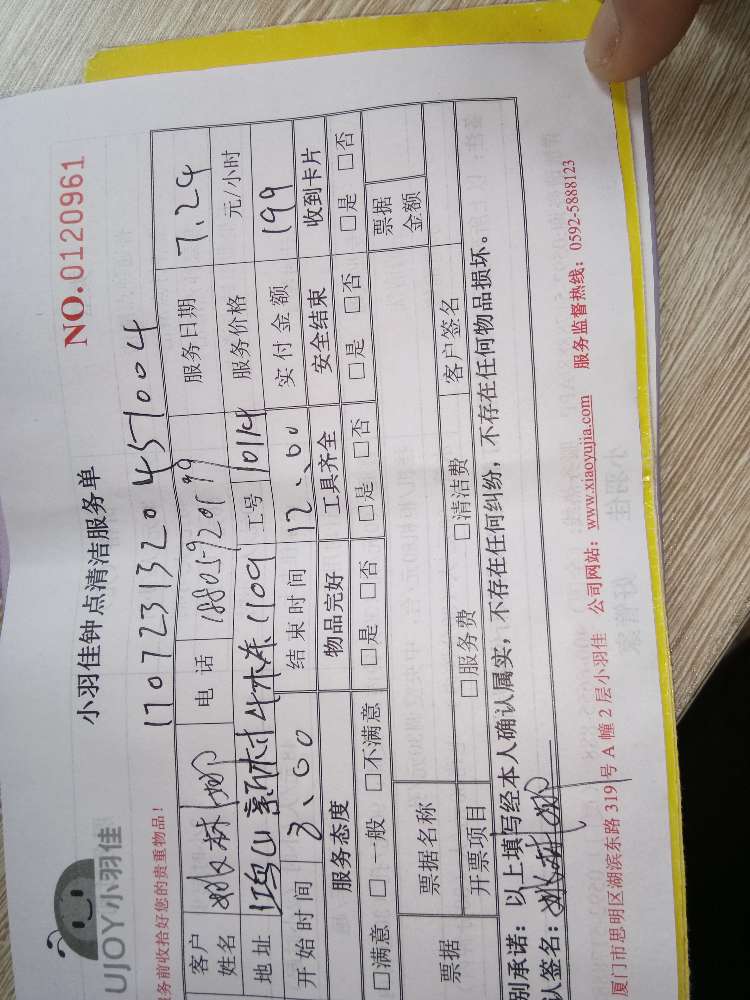 UJOY小羽佳
小羽佳钟点清洁服务单
NO.0120961
务前收拾好您的贵重物品!
170723132045 1004
客户姓名 姚林娜 电话 18805920599 服务日期 7.24
地址 鸿山新村4# 1109 工号 10114 服务价格 元/小时
开始时间 8.00 结束时间 12.00 实付金额 199
服务态度 物品完好 工具齐全 安全结束 收到卡片
□满意 □一般 □不满意 □是 □否 □是 □否 □是 □否 □是 □否
票据 票据名称 票据金额
开票项目 □服务费 □清洁费 客户签名
别承诺:以上填写经本人确认属实,不存在任何纠纷,不存在任何物品损坏。
认签名:姚林娜
厦门市思明区湖滨东路 319 号 A 幢 2 层小羽佳 公司网站:www.xiaoyujia.com 服务监督热线:0592-5888123